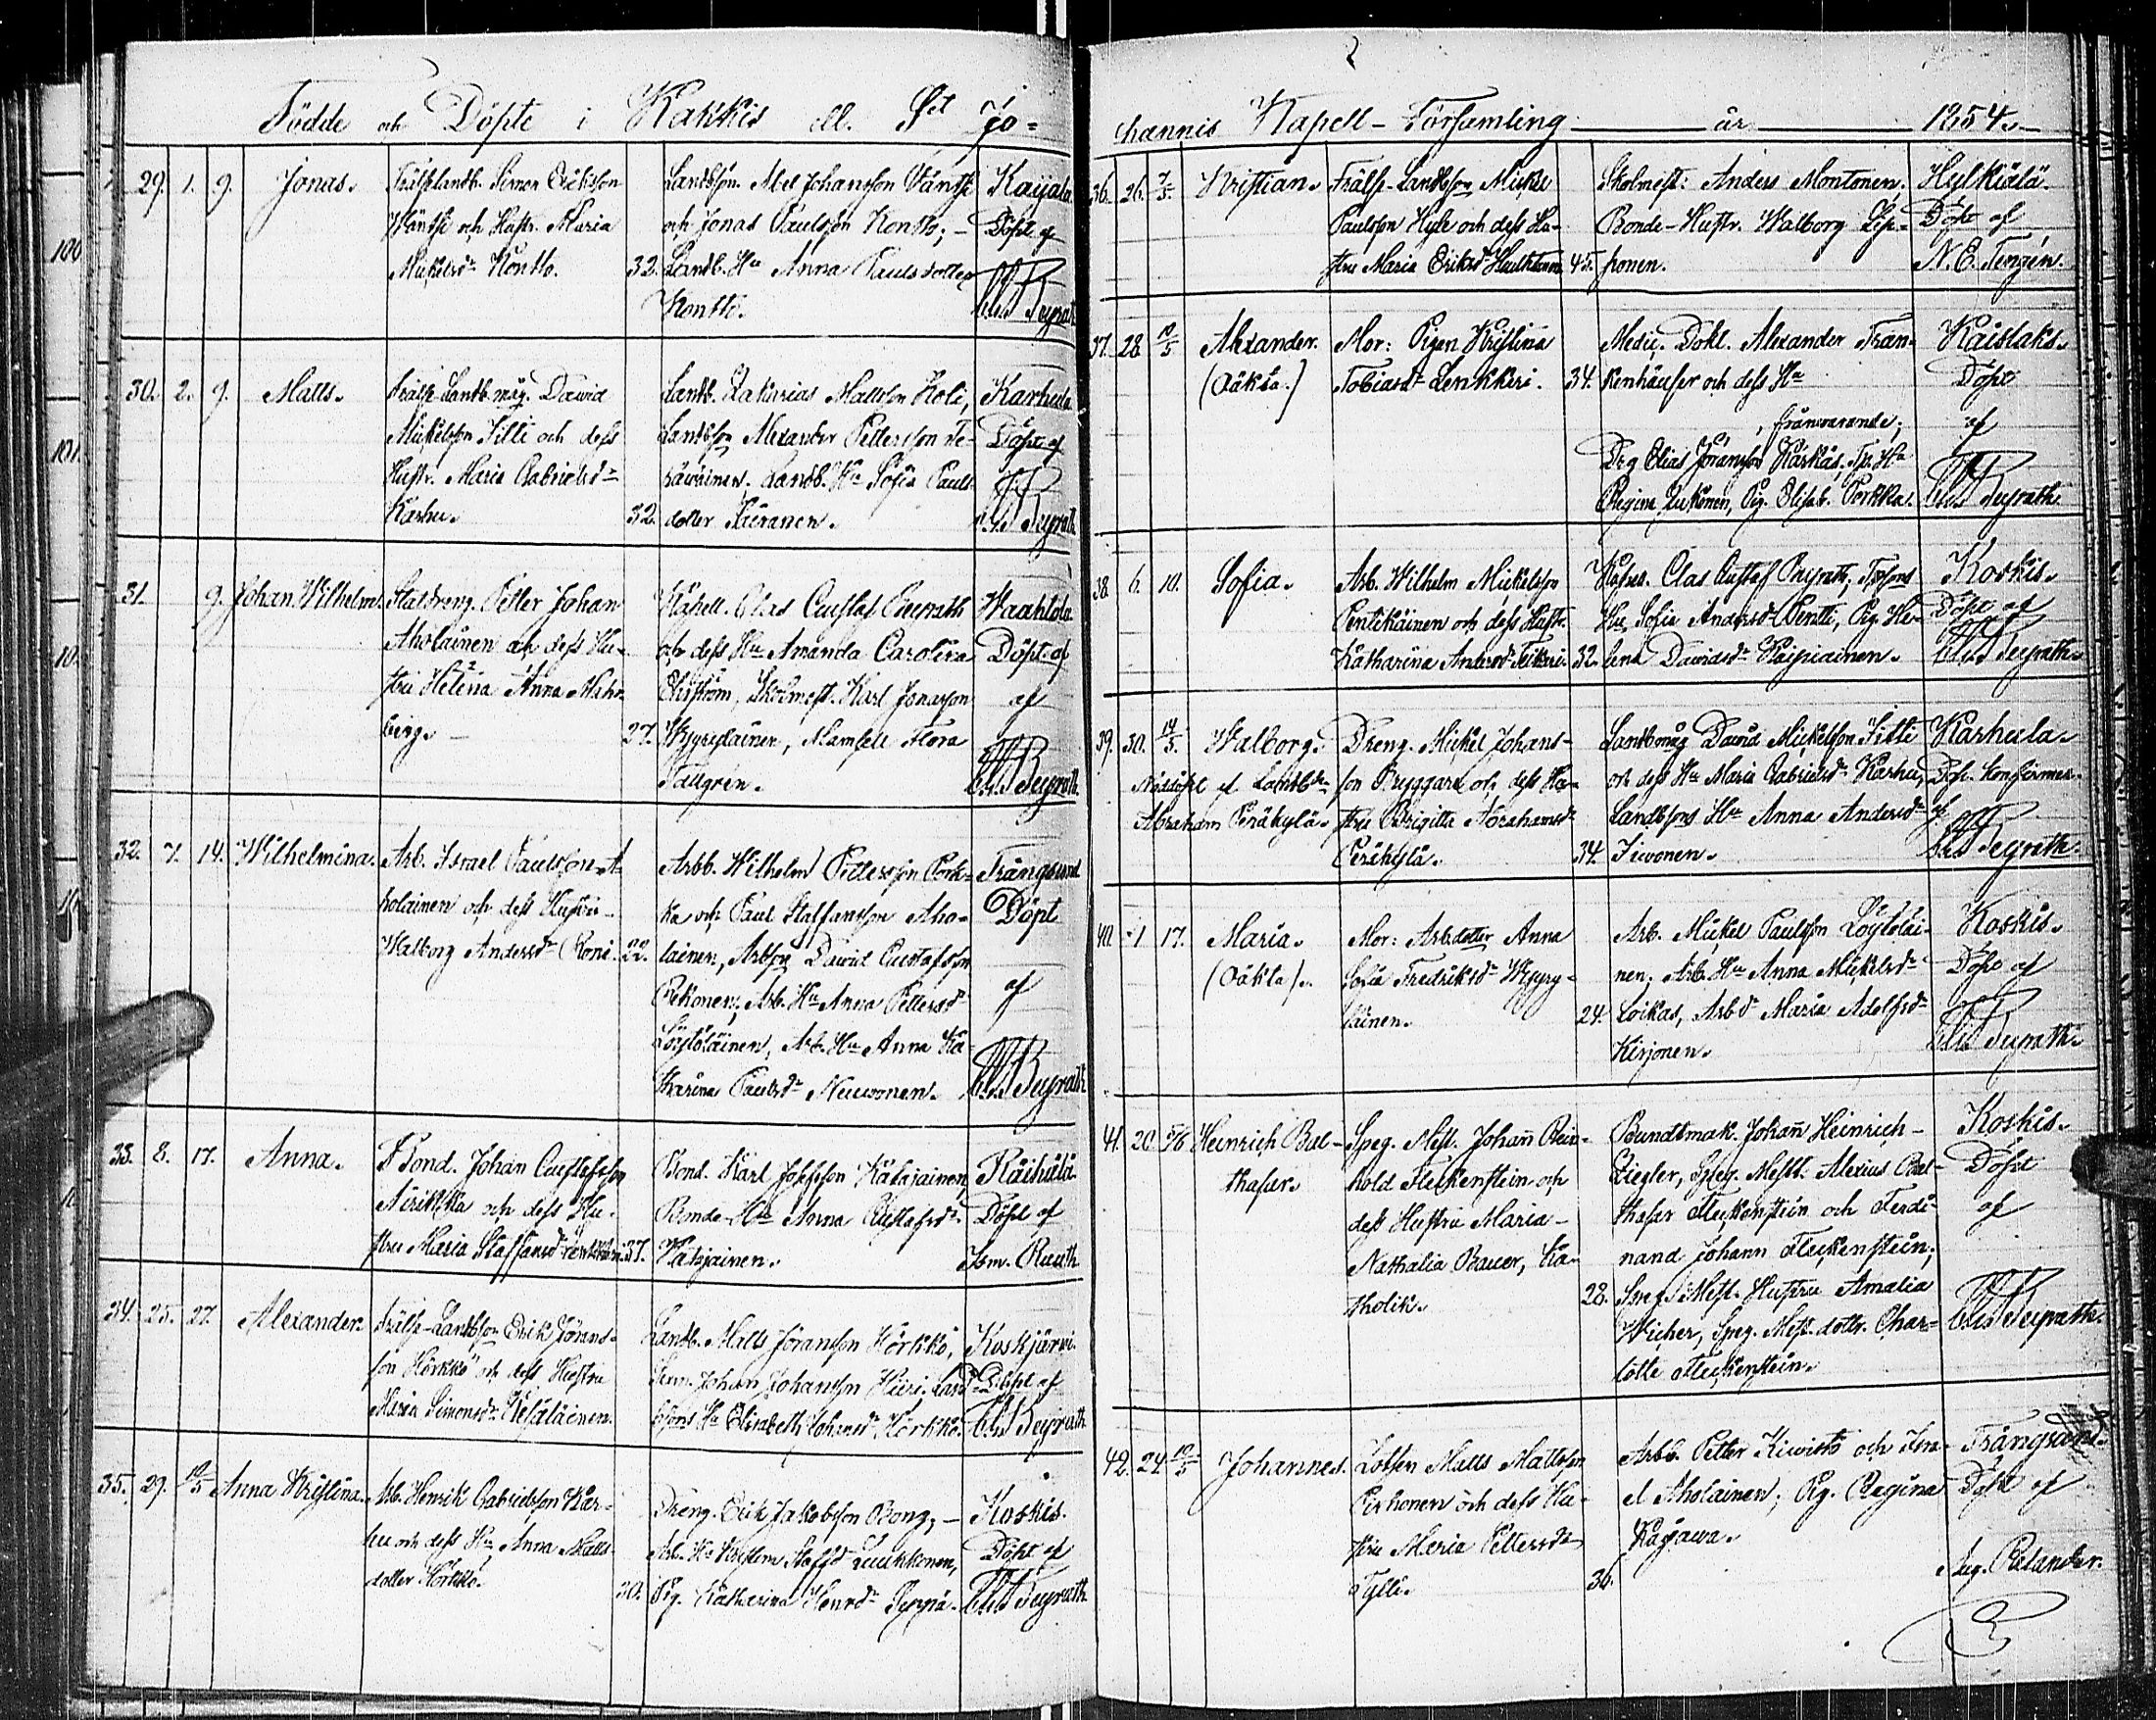 Födde och Döpte i Kakkis ell. Sct Jo=
29. 1. 9. Jonas. Frälselandb. Simon Eriksson
Wäntsi och Hustr. Maria
Mickelsdr Kontto. 32.
Landbson Abel Johansson Väntsi
och Jonas Paulsson Kontto; –
Landb. Hu Anna Paulsdotter
Kontto.
Kaijala
Döpt af
30. 2. 9. Matts. Frälse Landb. måg. David
Mickelsson Silli och dess
Hustr. Maria Gabrielsdr
Karhu. 32.
Landb. Zakarias Mattsson Holi,
Landbson Alexander Pettersson Te-
räwäinen. Landb. Hu Sofia Pauls
dotter
Karhula
Döpt af
31. 9. Johan Wilhelm. Statdreng. Petter Johan
Aholainen och dess Hu-
stru Helena Anna
27.
Kapell. Clas Gustaf
och dess Hu Amanda Carolina
Ehrström, Skolmest. Karl Jonasson
Wyyryläinen, Mamsell Flora
Tallgren.
Waahtola
Döpt af
af
32. 7. 14. Wilhelmina. Arb. Israel Paulsson A-
holainen och dess Hustru
Walborg Andersdr 22.
Arbb. Wilhelm Pettersson Pork-
ka och Paul Staffansson Aho-
lainen, Arbson David Gustafsson
Pekonen; Arb. Hu Anna Pettersdr
Löytöläinen, Arb. Hu Anna Ka-
tharina Paulsdr Neuvonen.
Trångsund
Döpt
af
33. 8. 17. Anna. Bond. Johan Gustafsson
Nirikka och dess Hu-
stru Maria Staffansdr 37.
Bond. Karl Josefsson
Bonde-Hu Anna Gustafsdr
Räihälä
Döpt af
34. 25. 27. Alexander. Frälse-Landbson Erik Jörans-
son Hörkkö och dess Hustru
Maria Simonsdr
Landb. Matts Jöransson Hörkkö,
Johan Johansson Hiiri. Land
bsons Hu Elisabeth Johansdr Hörkkö.
Koskijärvi.
Döpt af
35. 29. 10/5 Anna Kristina. Arb. Henrik Gabrielsson Kar-
hu och dess Hu Anna Matts
dotter Hörkkö. 30.
Dreng. Erik Jakobsson Bong; –
Arb. Hu Kristina Luukkonen,
Pig. Katharina Henrdr Seppä.
Koskis.
Döpt af
2
channis Kapell-Församling år 1854.
36. 26. 7/5. Kristian. Frälse-Landbson Mickel
Paulsson Hyle och dess Hu-
stru Maria Eriksdr 45.
Skolmest: Anders Montonen.
Bonde-Hustr. Walborg Lip-
ponen.
Hylkiälä.
Döpt af
N. E. Tengén.
37. 28. 10/5 Alexander. Mor: Pigan Kristina
(Oäkta.) Tobiasdr Lenkkeri. 34.
Medic. Dokt. Alexander Fran-
kenhäuser och dess Hu
, frånvarande;
Drg Elias Jöransson Kärkäs, Hu
Regina Liikonen, Pig. Elisab. Porkka.
Kaislaks.
Döpt
af
38. 6. 10. Sofia. Arb. Wilhelm Mickelsson
Pentikäinen och dess Hustr.
Katharina Andersdr 32.
Kapel. Clas Gustaf
Hu Sofia Andersdr Pentti, Pig. He-
lena Davidsdr
Koskis.
Döpt af
39. 30. 14/5. Walborg. Dreng. Mickel Johans-
Nöddöpt af son Bryggare och dess Hu-
Abraham Peräkylä. stru Brigitta Abrahamsdr
Peräkylä. 34.
Landb. måg David Mickelsson Silli
och dess Hu Maria Gabrielsdr Karhu,
Landbsons Hu Anna Andersdr
Siwonen.
Karhula.
Döp. konfirmer.
af
40. 1 17. Maria. Mor: Arb.dotter Anna
(Oäkta). Sofia Fredriksdr Wyyry-
läinen. 24.
Arb. Mickel Paulsson Löytöläi-
nen; Arb. Hu Anna Mickelsdr
Loikas, Arb dr Maria Adolfsdr
Kirjonen.
Koskis.
Döpt af
41. 20. 5/6 Heinrich Bal- Speg. Mest. Johan Rein-
thasar. hold Fleckenstein och
dess Hustru Maria
Nathalia Bauer, Ka-
tholik. 28.
Bundtmak. Johan Heinrich
Ziegler, Speg. Mest. Alexius Bal-
thasar Fleckenstein och Ferdi-
nand Johann Fleckenstein;
Speg. Mest. Hustru Amalia
Wicher, Speg. Mest. dottr. Char-
lotte Fleckenstein.
Koskis.
Döpt
af
42. 24. 10/5 Johannes. Lotsen Matts Mattsson
Pirhonen och dess Hu-
stru Maria Pettersdr
Tylli. 36.
Arbb. Petter Kiwistö och Isra-
el Aholainen; Pig. Regina
Kajawa.
Trångsund.
Döpt af
Aug. Relander.